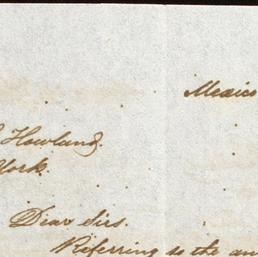 Mexico
Howland.
York.
Dear Sirs.
Referring to the an